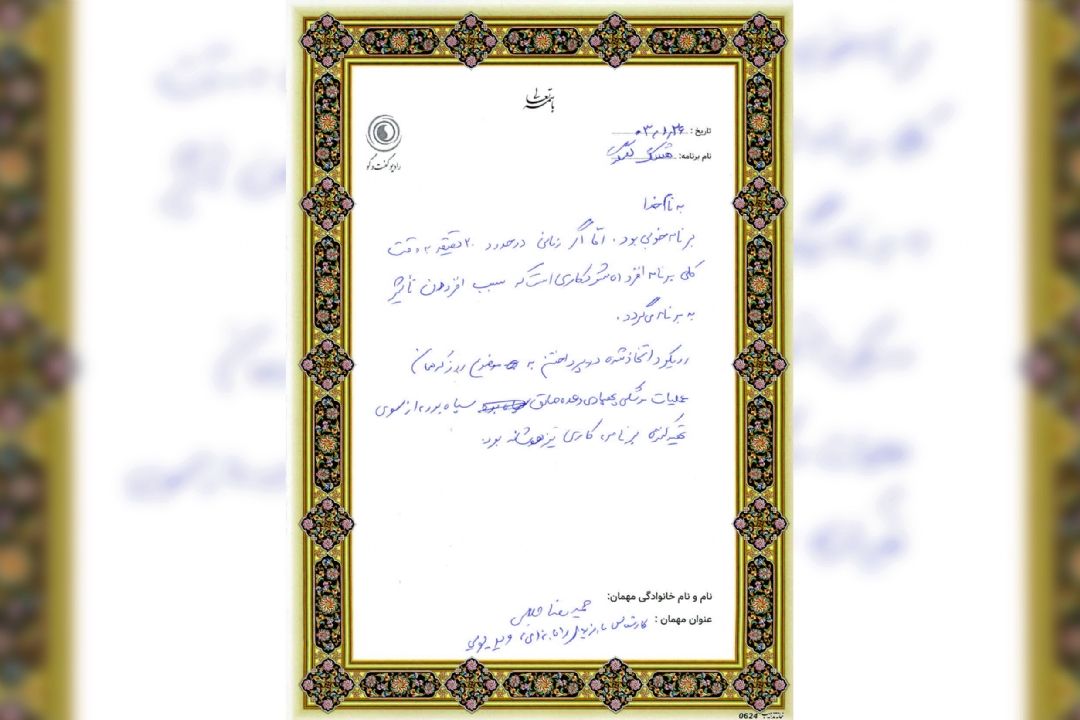 باسمه تعالی
رادیو گفت و گو
تاریخ: ۰۳/۰۱/۲۶
نام برنامه: گفتگوی
به نام خدا
برنامه خوبی بود. امّا اگر زمانی در حدود ۲۰ دقیقه به وقت
کلی برنامه افزوده شود کاری است که سبب افزودن تأثیر
به برنامه می‌گردد.
رویکرد اتخاذ شده در پرداختن به موضوع
عملیات موشکی پهپادی وعده صادق سپاه بود، از سوی
تهیه‌کننده برنامه، کاری تیزهوشانه بود.
نام و نام خانوادگی مهمان: حمیدرضا
عنوان مهمان: کارشناس بازی‌های رایانه‌ای و ویدیویی
0624